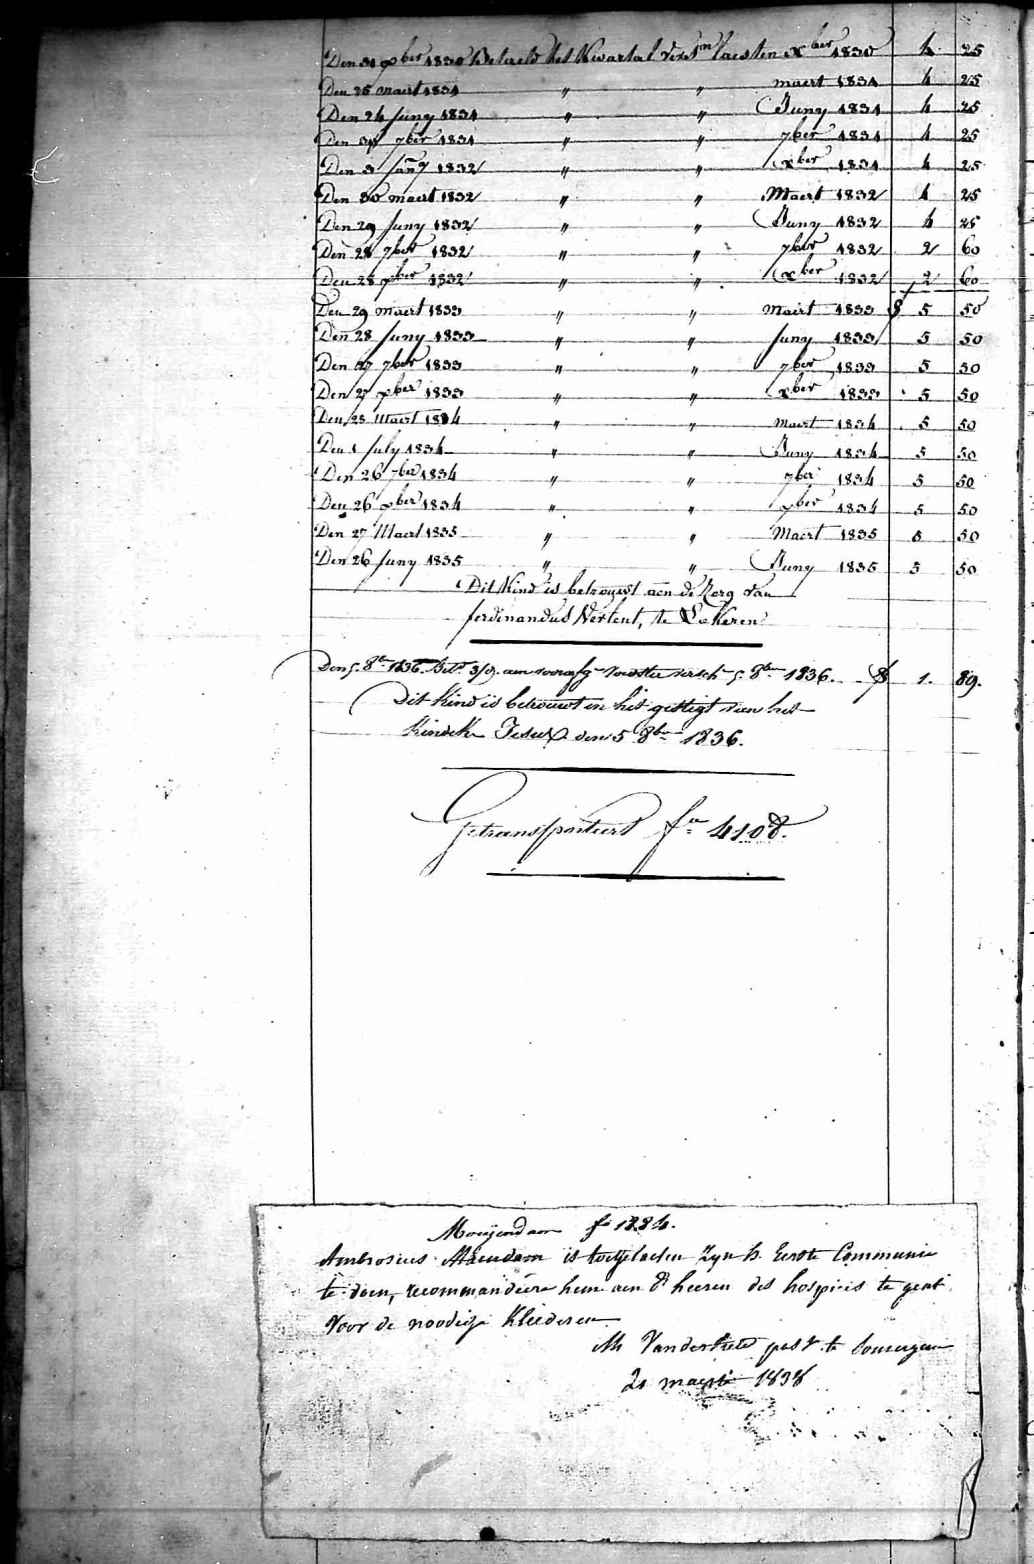 Den 31 xber 1830 Betaeld het Kwartal laesten xber 1830 4 25
Den 25 maert 1831 " " maert 1831 4 25
Den 24 Juny 1831 " " Juny 1831 4 25
Den 7ber 1831 " " 7ber 1831 4 25
Den 3 Jany 1832 " " xber 1831 4 25
Den 30 maert 1832 " " Maert 1832 4 25
Den 29 Juny 1832 " " Juny 1832 4 25
Den 28 7ber 1832 " " 7ber 1832 2 60
Den 28 xber 1832 " " xber 1832 2 60
Den 29 maert 1833 " " maert 1833 5 50
Den 28 Juny 1833 " " Juny 1833 5 50
Den 27 7ber 1833 " " 7ber 1833 5 50
Den 27 xber 1833 " " xber 1833 5 50
Den 28 Maert 1834 " " maert 1834 5 50
Den 1 July 1834 " " Juny 1834 5 50
Den 26 7ber 1834 " " 7ber 1834 5 50
Den 26 xber 1834 " " xber 1834 5 50
Den 27 Maert 1835 " " Maert 1835 5 50
Den 26 Juny 1835 " " Juny 1835 5 50
Dit Kind is betrouwt aen de Zorg van
ferdinandus Vertent, te Lokeren
Den 5 8br 1836 aen 5 8ber 1836. 1. 89.
Dit Kind is betrouwt in het gestigt van het
Kindeke Jesus den 5 8ber 1836.
Getransporteert fo 410
fo 1284.
Ambrosius is toegelaeten Zyn h. Eerste Communie
te doen, recommandeere hem aen de heeren des hospicis te gent
voor de noodige Kleederen
past te
1838